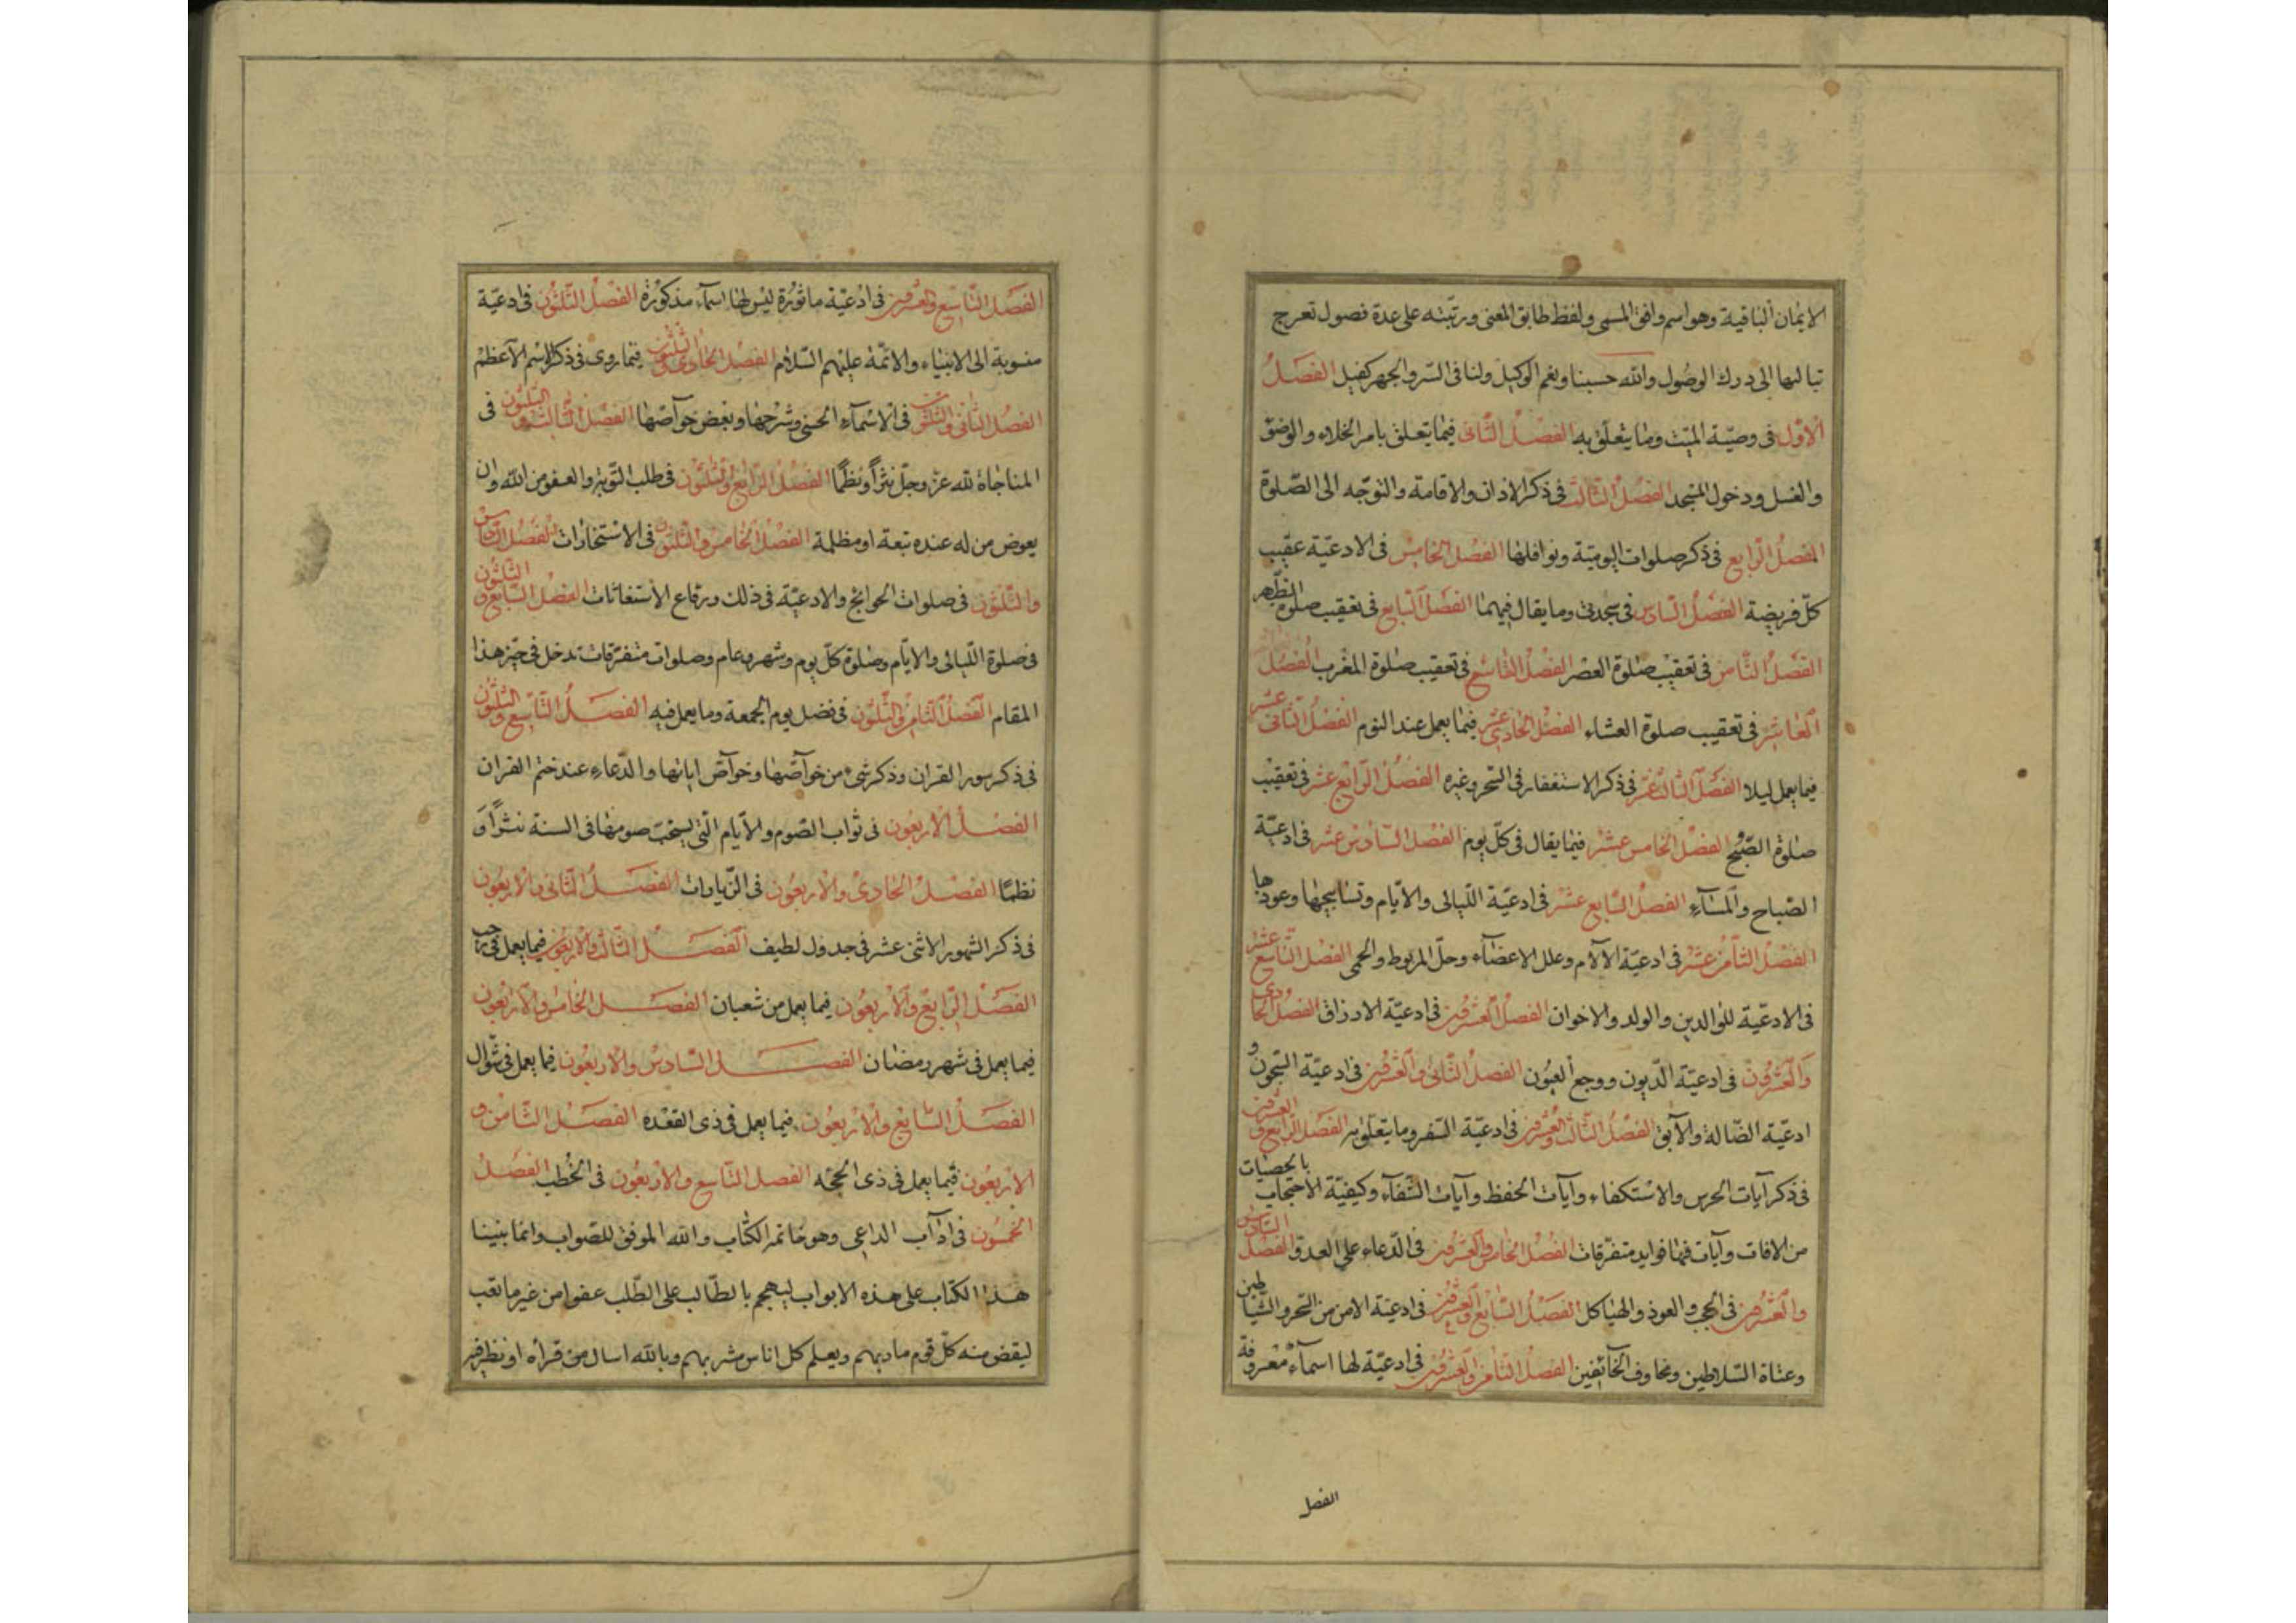 الايمان الباقية وهو اسم وافق المسمى ولفظ طابق المعنى ورتبته على عدة فصول تعرج
تباليها الى درك الوصول والله حسبنا ونعم الوكيل ولنا فى السر والجهر كفيل الفصل
الاول فى وصية الميت وما يتعلق به الفصل الثانى فيما يتعلق بامر الخلاء والوضؤ
والغسل ودخول المسجد الفصل الثالث فى ذكر الاذان والاقامة والتوجه الى الصلوة
الفصل الرابع فى ذكر صلوات اليومية ونوافلها الفصل الخامس فى الادعية عقيب
كل فريضة الفصل السادس فى سجدتى وما يقال فيهما الفصل السابع فى تعقيب صلوة الظهر
الفصل الثامن فى تعقيب صلوة العصر الفصل التاسع فى تعقيب صلوة المغرب الفصل
العاشر فى تعقيب صلوة العشاء الفصل الحادى عشر فيما يعمل عند النوم الفصل الثانى عشر
فيما يعمل ليلا الفصل الثالث عشر فى ذكر الاستغفار فى السحر وغيره الفصل الرابع عشر فى تعقيب
صلوة الصبح الفصل الخامس عشر فيما يقال فى كل يوم الفصل السادس عشر فى ادعية
الصباح والمسآء الفصل السابع عشر فى ادعية الليالى والايام وتسابيحها وعودها
الفصل الثامن عشر فى ادعية الآلام وعلل الاعضآء وحل المربوط والحمى الفصل التاسع عشر
فى الادعية للوالدين والولد والاخوان الفصل العشرون فى ادعية الارزاق الفصل الحادى
والعشرون فى ادعية الديون ووجع العيون الفصل الثانى والعشرون فى ادعية السجون و
ادعية الضالة والآبق الفصل الثالث والعشرون فى ادعية السفر وما يتعلق به الفصل الرابع والعشرون
فى ذكر آيات الحرس والاستكفاء وآيات الحفظ وآيات الشفآء وكيفية الاحتجاب بالحصيات
من الافات وآيات فيها فوايد متفرقات الفصل الخامس والعشرون فى الدعاء على العدو الفصل السادس
والعشرون فى الحجب والعوذ والهياكل الفصل السابع والعشرون فى ادعية الامن من السحر والشياطين
وعتاة السلاطين ومخاوف الخآئفين الفصل الثامن والعشرون فى ادعية لها اسمآء معروفة
الفصل
الفصل التاسع والعشرون فى ادعية ماثورة ليس لها اسمآء مذكورة الفصل الثلثون فى ادعية
منسوبة الى الانبياء والائمة عليهم السلام الفصل الحادى والثلثون فيما روى فى ذكر الاسم الاعظم
الفصل الثانى والثلثون فى الاسمآء الحسنى وشرحها وبعض خوآصها الفصل الثالث والثلثون فى
المناجاة لله عز وجل نثرًا ونظمًا الفصل الرابع والثلثون فى طلب التوبة والعفو من الله وان
يعوض من له عنده تبعة او مظلمة الفصل الخامس والثلثون فى الاستخارات الفصل السادس
والثلثون فى صلوات الحوايج والادعية فى ذلك ورقاع الاستغاثات الفصل السابع والثلثون
فى صلوة الليالى والايام وصلوة كل يوم وشهر وعام وصلوات متفرقات تدخل فى حيز هذا
المقام الفصل الثامن والثلثون فى فضل يوم الجمعة وما يعمل فيه الفصل التاسع والثلثون
فى ذكر سور القران وذكر شىء من خوآصها وخوآص اياتها والدعاء عند ختم القران
الفصل الاربعون فى ثواب الصوم والايام التى يستحب صومها فى السنة نثرًا و
نظمًا الفصل الحادى والاربعون فى الزيارات الفصل الثانى والاربعون
فى ذكر الشهور الاثنى عشر فى جدول لطيف الفصل الثالث والاربعون فيما يعمل فى رجب
الفصل الرابع والاربعون فيما يعمل من شعبان الفصل الخامس والاربعون
فيما يعمل فى شهر رمضان الفصل السادس والاربعون فيما يعمل فى شوال
الفصل السابع والاربعون فيما يعمل فى ذى القعده الفصل الثامن و
الاربعون فيما يعمل فى ذى الحجه الفصل التاسع والاربعون فى الخطب الفصل
الخمسون فى ادآب الداعى وهو خاتمة الكتاب والله الموفق للصواب وانما بنينا
هذا الكتاب على هذه الابواب ليهجم بالطالب على الطلب عفوا من غير ما تعب
ليقض منه كل قوم ماربهم ويعلم كل اناس مشربهم وبالله اسال من قرأه او نظر فيه